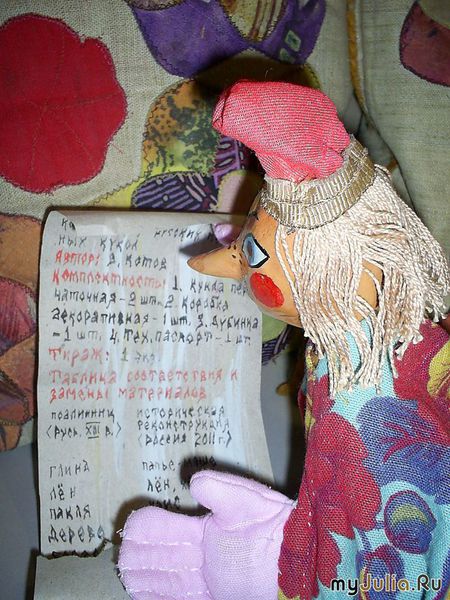 русских
ных кукол
Автор: В. Котов
Комплектность: 1. кукла пер
чаточная - 2 шт. 2. коробка
декоративная - 1 шт. 3. дубинка
- 1 шт. 4. тех. паспорт - 1 шт.
Тираж: 1 экз.
Таблица соответствия и
замены материалов
подлинник историческая
(Русь, XVI в.) реконструкция
(Россия 2011 г.)
глина папье-маше
лён лён,
пакля
дерево
myJulia.Ru